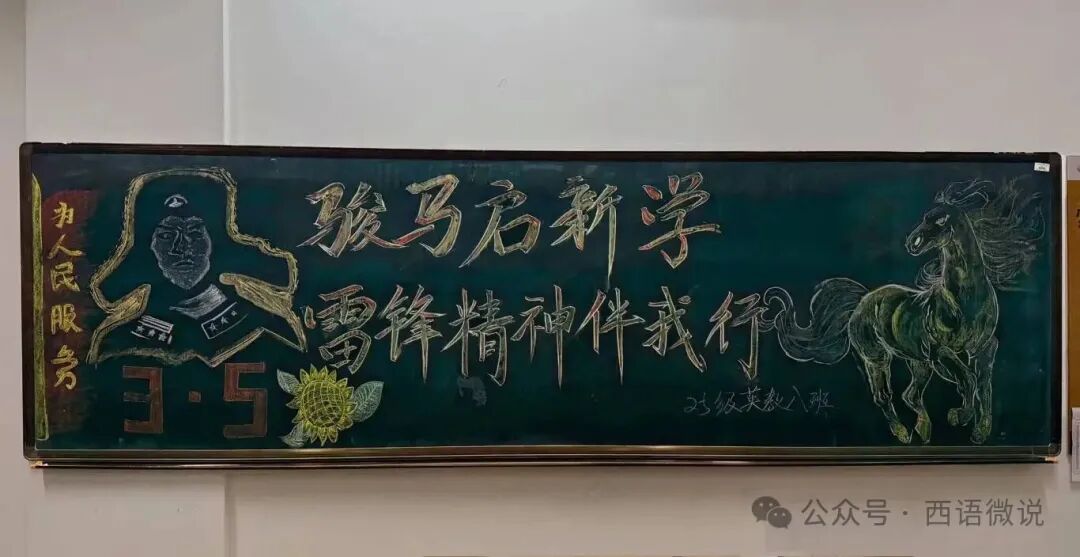 为人民服务
骏马启新学
雷锋精神伴我行
3·5
25级英教八班
公众号·西语微说